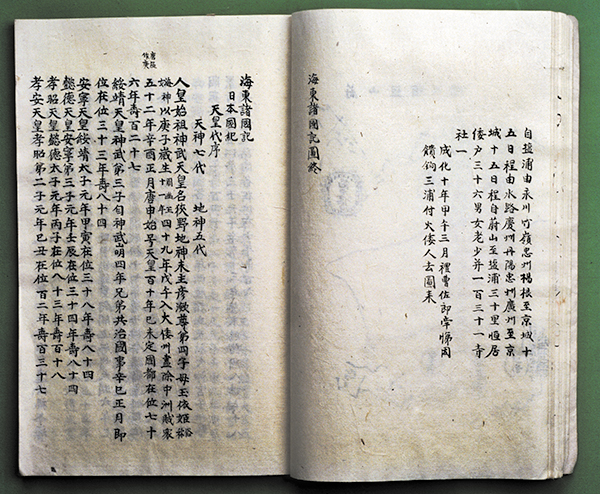 自鹽浦由永川竹嶺忠州楊根至京城十
五日程由水路慶州丹陽忠州廣州至京
城十五日程自蔚山至鹽浦三十里恒居
倭戶三十六男女老少并一百三十一寺
社一
成化十年甲午三月禮曹佐郎悌因
饋餉三浦付火倭人去圖來
海東諸國記圖終
海東諸國記
日本國紀
天皇代序
天神七代 地神五代
人皇始祖神武天皇名狹野地神末主彥瀲尊第四子母玉依姬俗稱
海神女以庚午歲生四十九年戊午入大倭州盡除中洲賊衆
五十二年辛酉正月庚申始号天皇百十年己未定國都在位七十
六年壽百二十七
綏靖天皇神武第三子自神武崩四年兄弟共治國事辛巳正月即
位在位三十三年壽八十四
安寧天皇綏靖太子元年甲寅在位三十八年壽八十四
懿德天皇安寧第三子元年壬辰在位三十四年壽八十四
孝昭天皇懿德太子元年丙子在位八十三年壽百十八
孝安天皇孝昭第二子元年己丑在位百二年壽百三十七